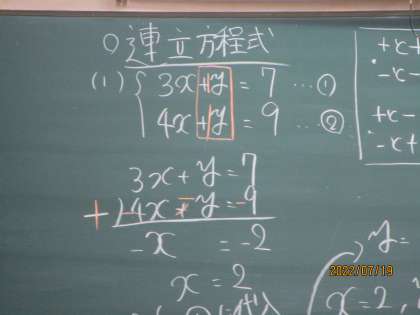 ○連立方程式
(1) { 3x+y=7 …①
4x+y=9 …②
3x+y=7
+) -4x-y=-9
-x =-2
x=2
y=
x=2,
2022/07/19
+x+
-x-
+x-
-x+